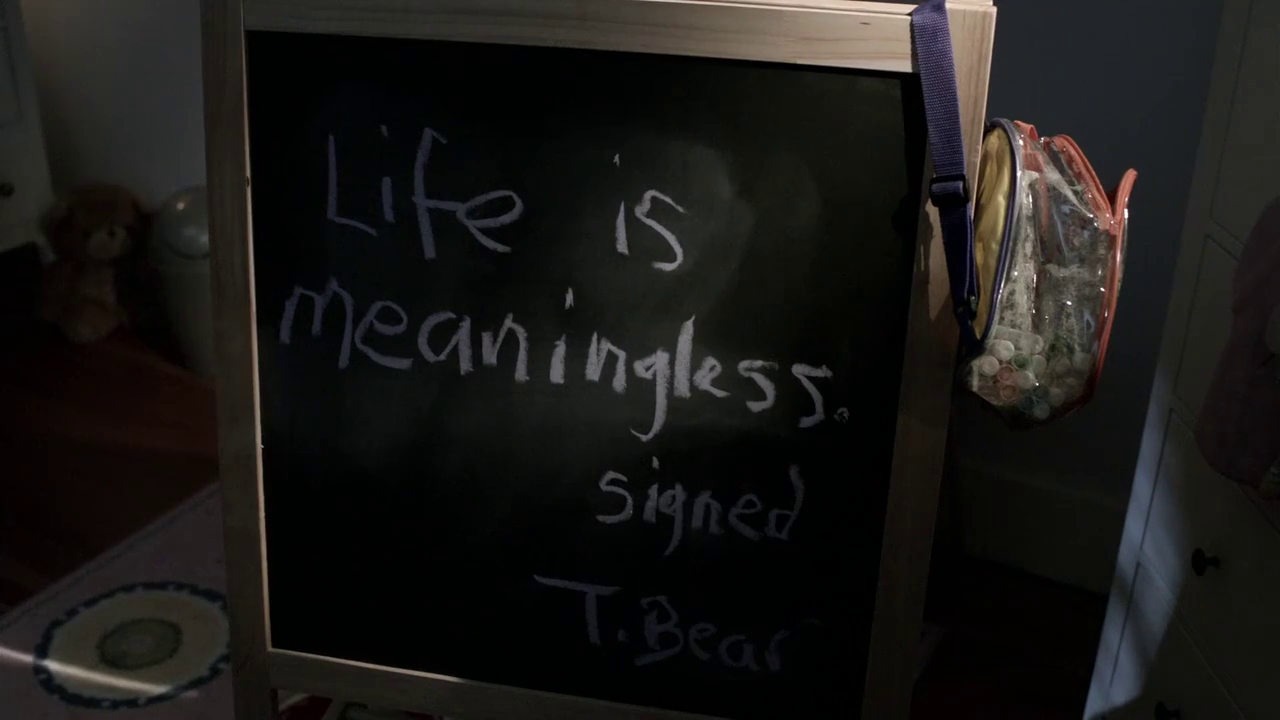 Life is
meaningless.
signed
T. Bear